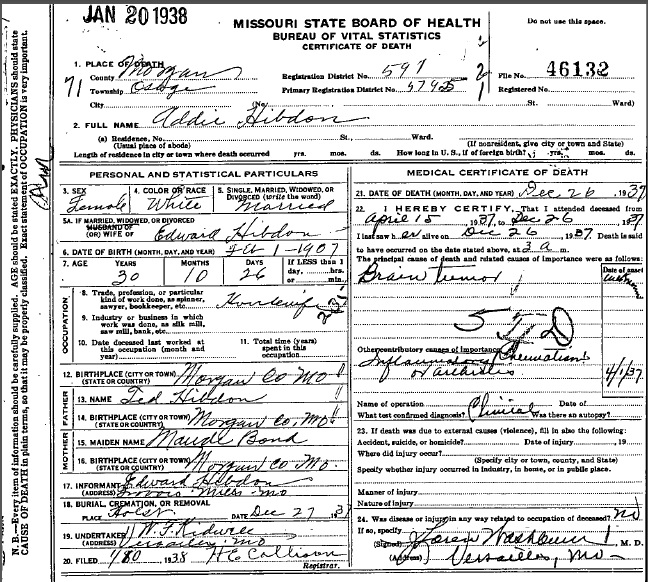 JAN 20 1938
MISSOURI STATE BOARD OF HEALTH
BUREAU OF VITAL STATISTICS
CERTIFICATE OF DEATH
Do not use this space.
1. PLACE OF DEATH
County Morgan
Registration District No. 597
File No. 46132
71 Township Osage
Primary Registration District No.
Registered No.
City
No.
St. Ward)
2. FULL NAME Addie Hibdon
(a) Residence, No. St., Ward.
(Usual place of abode) (If nonresident, give city or town and State)
Length of residence in city or town where death occurred yrs. mos. ds. How long in U. S., if of foreign birth? yrs. mos. ds.
PERSONAL AND STATISTICAL PARTICULARS
3. SEX Female
4. COLOR OR RACE White
5. SINGLE, MARRIED, WIDOWED, OR DIVORCED (write the word) Married
5A. IF MARRIED, WIDOWED, OR DIVORCED
HUSBAND OF
(OR) WIFE OF Edward Hibdon
6. DATE OF BIRTH (MONTH, DAY, AND YEAR) Feb 1 - 1907
7. AGE YEARS MONTHS DAYS If LESS than 1
30 10 26 day, hrs.
or min.
OCCUPATION
8. Trade, profession, or particular
kind of work done, as spinner,
sawyer, bookkeeper, etc. Housewife
9. Industry or business in which
work was done, as silk mill,
saw mill, bank, etc.
10. Date deceased last worked at
this occupation (month and
year)
11. Total time (years)
spent in this
occupation
12. BIRTHPLACE (CITY OR TOWN) Morgan Co Mo
(STATE OR COUNTRY)
FATHER
13. NAME Ted Hibdon
14. BIRTHPLACE (CITY OR TOWN) Morgan Co, Mo
(STATE OR COUNTRY)
MOTHER
15. MAIDEN NAME Maude Bond
16. BIRTHPLACE (CITY OR TOWN) Morgan Co Mo.
(STATE OR COUNTRY)
17. INFORMANT Edward Hibdon
(ADDRESS) Mills Mo
18. BURIAL, CREMATION, OR REMOVAL
PLACE DATE Dec 27 1937
19. UNDERTAKER W. F. Kidwell
(ADDRESS) Versailles, Mo
20. FILED 1938 Registrar.
MEDICAL CERTIFICATE OF DEATH
21. DATE OF DEATH (MONTH, DAY, AND YEAR) Dec 26 1937
22. I HEREBY CERTIFY, That I attended deceased from
April 15 1937, to Dec 26 1937
I last saw her alive on Dec 26 1937. Death is said
to have occurred on the date stated above, at 3 a m.
The principal cause of death and related causes of importance were as follows:
Date of onset
Brain tumor
Other contributory causes of importance:
Inflammatory Rheumatism
or Arthritis 4/1/37
Name of operation Date of
What test confirmed diagnosis? Clinical Was there an autopsy?
23. If death was due to external causes (violence), fill in also the following:
Accident, suicide, or homicide? Date of injury , 19
Where did injury occur?
(Specify city or town, county, and State)
Specify whether injury occurred in industry, in home, or in public place.
Manner of injury
Nature of injury
24. Was disease or injury in any way related to occupation of deceased? no
If so, specify
(Signed) Washburn M. D.
(Address) Versailles, Mo
N. B.—Every item of information should be carefully supplied. AGE should be stated EXACTLY. PHYSICIANS should state
CAUSE OF DEATH in plain terms, so that it may be properly classified. Exact statement of OCCUPATION is very important.